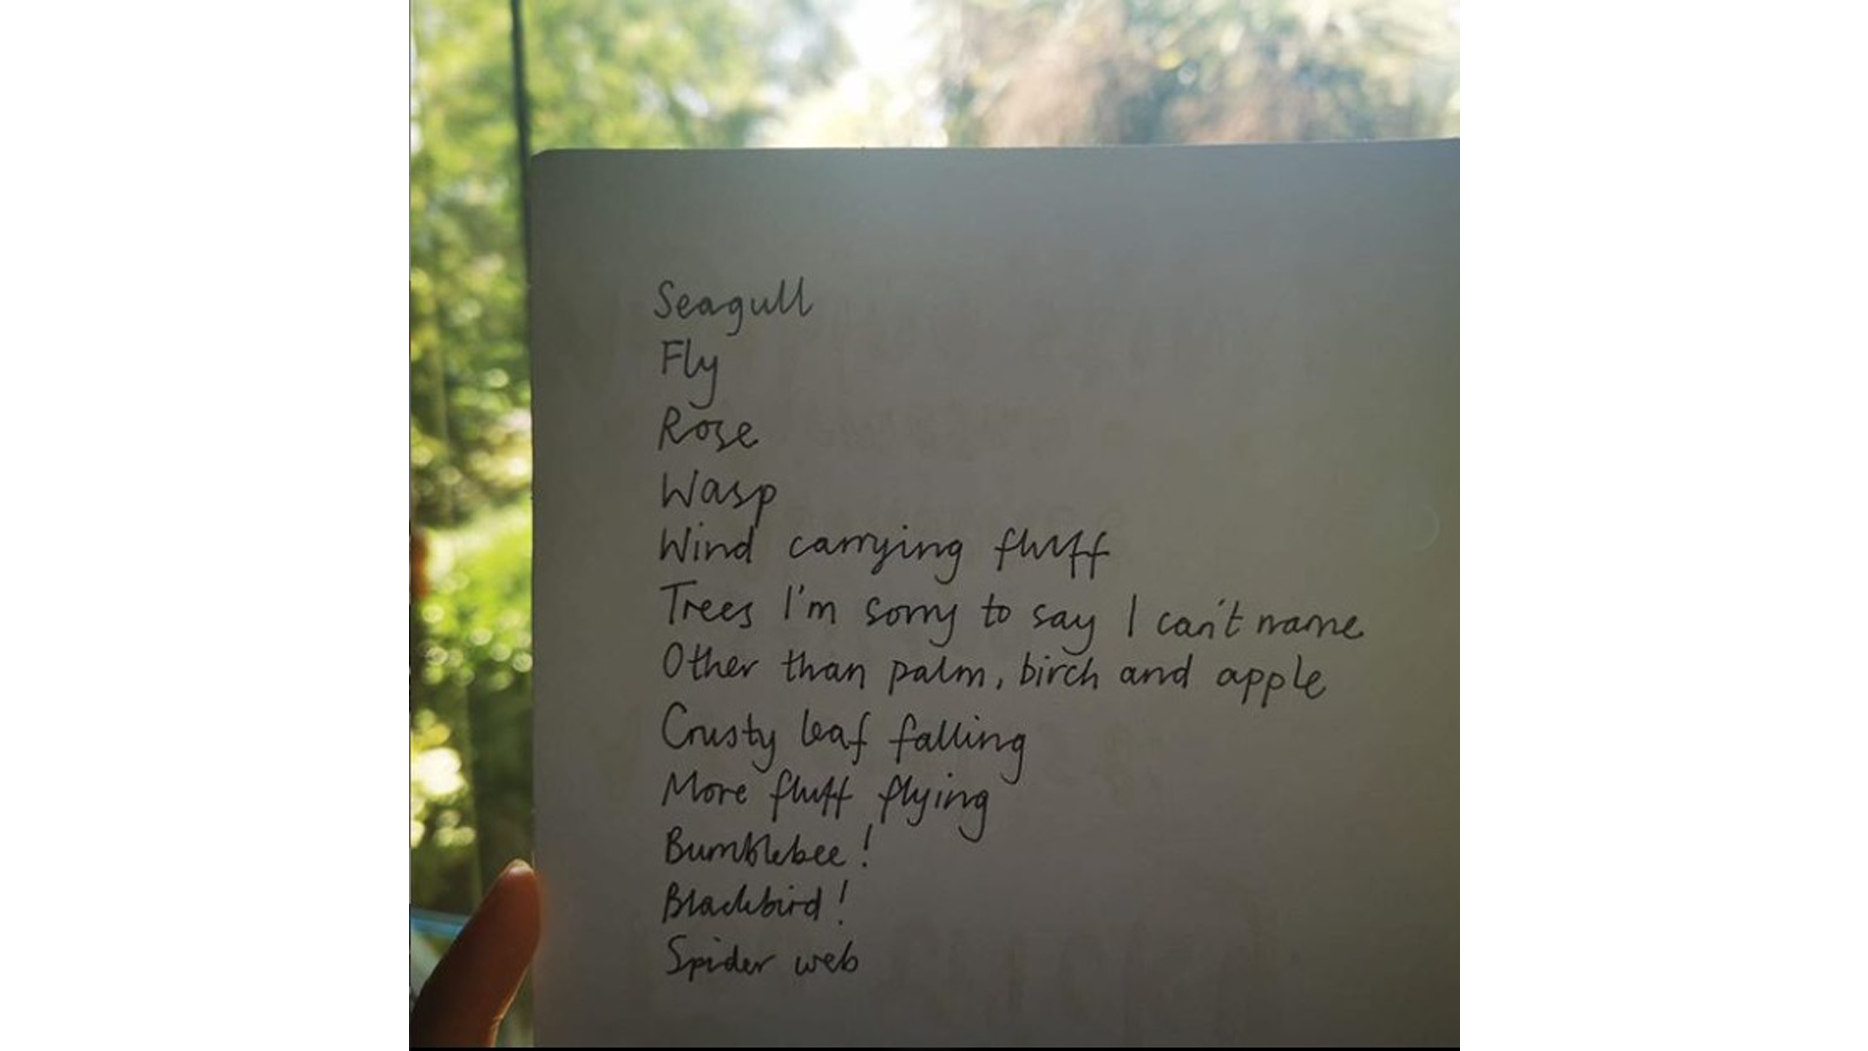 Seagull
Fly
Rose
Wasp
Wind carrying fluff
Trees I'm sorry to say I can't name
Other than palm, birch and apple
Crusty leaf falling
More fluff flying
Bumblebee!
Blackbird!
Spider web